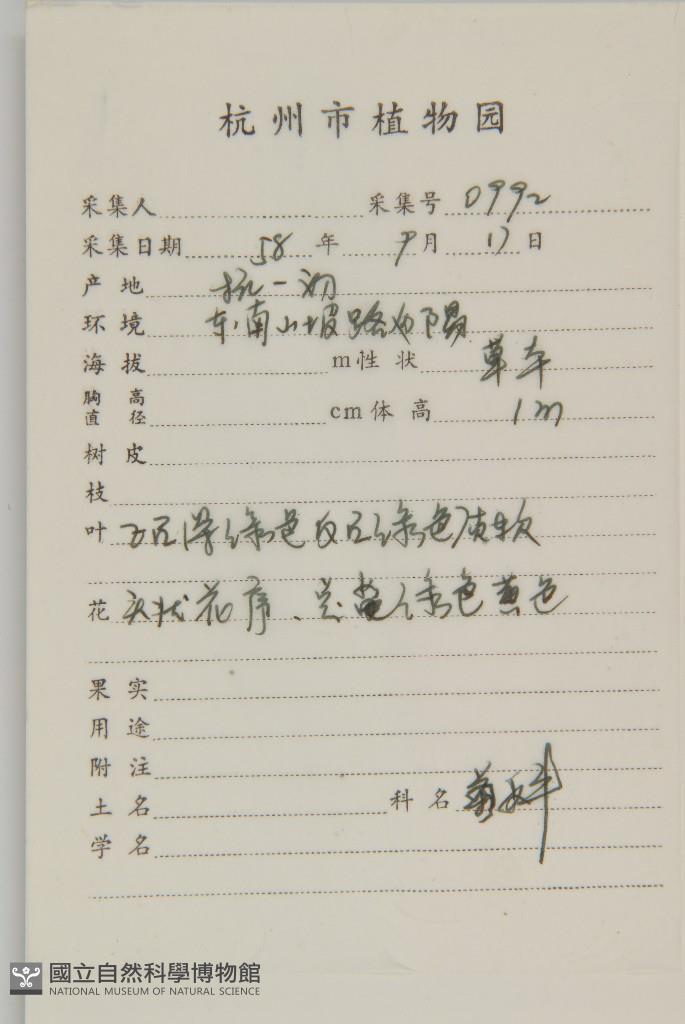 杭州市植物园
采集人 采集号 0992
采集日期 58 年 9 月 17 日
产地 杭一初
环境 东南山坡路边阴
海拔 m 性状 草本
胸高直径 cm 体高 1m
树皮
枝
叶 正面深绿色反面绿色质软
花 头状花序、总苞绿色黄色
果实
用途
附注
土名 科名 菊科
学名
國立自然科學博物館
NATIONAL MUSEUM OF NATURAL SCIENCE